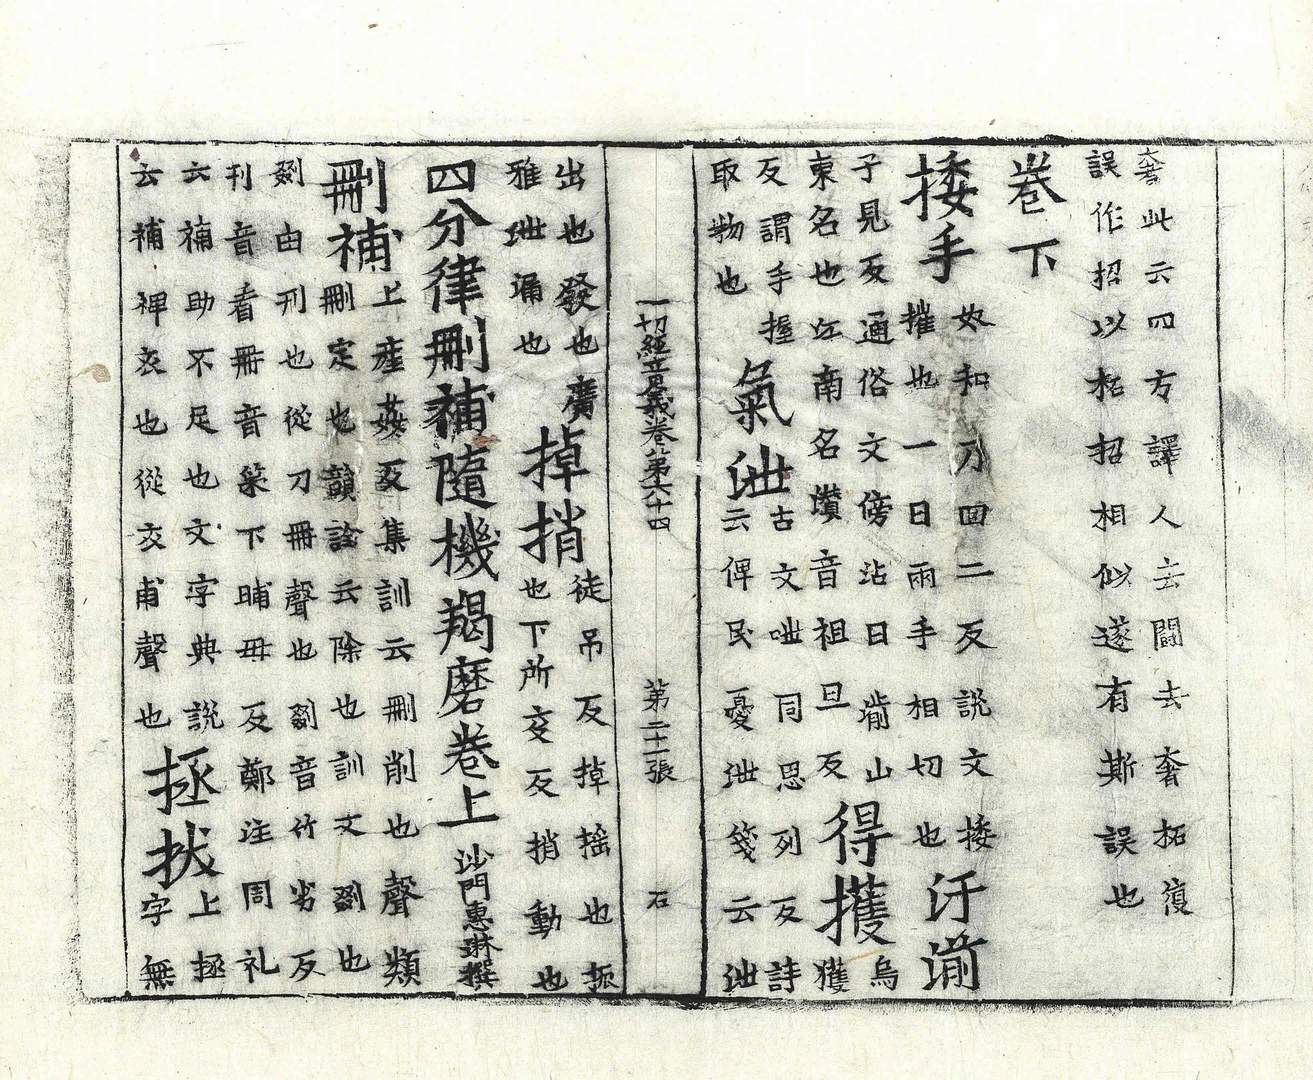 奢此云四方譯人去鬪去奢拓澓
誤作招以柘招相似遂有斯誤也
卷下
捼手 奴和乃回二反說文捼
摧也一曰兩手相切也 汙湔
子見反通俗文傍沾曰湔山
東名也江南名灒音祖旦反 得擭 烏
獲
反謂手握
取物也 氣泄 古文呭同思列反詩
云俾民憂泄箋云泄
一切經音義卷第六十四 第二十一張 石
出也發也廣
雅泄漏也 掉捎 徒吊反掉搖也振
也下所交反捎動也
四分律刪補隨機羯磨卷上 沙門惠琳撰
刪補 上產姦反集訓云刪削也聲類
刪定也韻詮云除也訓文劉也
由刊也從刀冊聲也劉音竹劣反
刊音看冊音策下晡毋反鄭注周礼
六補助不足也文字典說
云補裨衣也從衣甫聲也 拯拔 上拯
字無